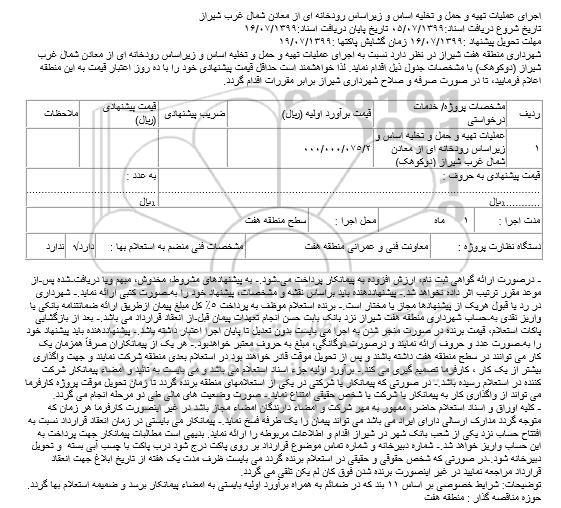 اجرای عملیات تهیه و حمل و تخلیه اساس و زیراساس رودخانه ای از معادن شمال غرب شیراز
تاریخ شروع دریافت اسناد:۰۵/۰۷/۱۳۹۹ تاریخ پایان دریافت اسناد:۱۶/۰۷/۱۳۹۹
مهلت تحویل پیشنهاد :۱۶/۰۷/۱۳۹۹ زمان گشایش پاکتها :۱۹/۰۷/۱۳۹۹
شهرداری منطقه هفت شیراز در نظر دارد نسبت به اجرای عملیات تهیه و حمل و تخلیه اساس و زیراساس رودخانه ای از معادن شمال غرب
شیراز (دوکوهک) با مشخصات جدول ذیل اقدام نماید. لذا خواهشمند است حداقل قیمت پیشنهادی خود را با ده روز اعتبار قیمت به این منطقه
اعلام فرمایید، تا در صورت صرفه و صلاح شهرداری شیراز برابر مقررات اقدام گردد.
ردیف مشخصات پروژه/ خدمات درخواستی قیمت برآورد اولیه (ریال) ضریب پیشنهادی قیمت پیشنهادی (ریال) ملاحظات
۱ عملیات تهیه و حمل و تخلیه اساس و
زیراساس رودخانه ای از معادن ۰۰۰/۰۰۰/۰۷۵/۲
شمال غرب شیراز (دوکوهک)
قیمت پیشنهادی به حروف : به عدد :
...........ریال ریال
مدت اجرا : ۱ ماه محل اجرا : سطح منطقه هفت
دستگاه نظارت پروژه : معاونت فنی و عمرانی منطقه هفت مشخصات فنی منضم به استعلام بها : دارد/۹ ندارد
ـ درصورت ارائه گواهی ثبت نام، ارزش افزوده به پیمانکار پرداخت می‌شود. ـ به پیشنهادهای مشروط، مخدوش، مبهم ویا دریافت‌شده پس‌از
موعد مقرر ترتیب اثر داده نخواهد شد. ـ پیشنهاددهنده باید براساس نقشه و مشخصات، پیشنهاد خود را به‌صورت کتبی ارائه نماید. ـ شهرداری
در رد یا قبول هریک از پیشنهادها مجاز یا مختار است. ـ برنده استعلام موظف به پرداخت ۵٪ کل مبلغ پیمان ازطریق ارائه ضمانتنامه بانکی یا
واریز نقدی به‌حساب شهرداری منطقه هفت شیراز نزد بانک بابت حسن انجام تعهدات پیمان قبل‌از انعقاد قرارداد می باشد. ـ بعد از بازگشایی
پاکات استعلام، قیمت برنده در صورت منجر شدن به اجرا می بایست بدون تعدیل تا پایان اجرا اعتبار داشته باشد. ـ پیشنهاددهنده باید پیشنهاد خود
را به‌صورت عدد و حروف ارائه نمایند و درصورت دوگانگی، مبلغ به حروف معتبر خواهدبود. ـ هر یک از پیمانکاران صرفاً همزمان یک
کار می توانند در سطح منطقه هفت داشته باشند و پس از تحویل موقت قادر خواهند بود در استعلام بعدی منطقه شرکت نمایند و جهت واگذاری
بیشتر از یک کار ، کارفرما تصمیم گیری می کند. ـ برآورد اولیه جزء اسناد استعلام می باشد و می بایست به تائید و امضاء پیمانکار شرکت
کننده در استعلام رسیده باشد. ـ در صورتی که پیمانکار یا شرکتی در یکی از استعلامهای منطقه برنده گردد تا زمان تحویل موقت پروژه کارفرما
می تواند از واگذاری کار به پیمانکار یا شرکت یا شخص حقیقی امتناع نماید. ـ صورت وضعیت های مالی طی دو مرحله انجام می گردد.
ـ کلیه اوراق و اسناد استعلام حاضر، ممهور به مهر شرکت و امضاء دارندگان امضاء مجاز باشد در غیر اینصورت کارفرما هر زمان که
متوجه گردد مدارک ارسالی دارای ایراد می باشد می تواند پیمان را یک طرفه فسخ نماید. ـ پیمانکار می بایستی در زمان انعقاد قرارداد نسبت به
افتتاح حساب نزد یکی از شعب بانک شهر در شیراز اقدام و اطلاعات مربوطه را ارائه نماید. بدیهی است مطالبات پیمانکار جهت پرداخت به
این حساب واریز خواهد شد. ـ شماره دبیرخانه و شماره تماس موضوع قرارداد بر روی پاکت درج شود درب پاکت با چسب آبی بسته و تحویل
دبیرخانه شود.ـدر صورتی که شخص حقوقی و حقیقی در استعلام برنده گردد می بایست ظرف مدت یک هفته از تاریخ ابلاغ جهت انعقاد
قرارداد مراجعه نمایید در غیر اینصورت برنده شدن فوق کان لم یکن تلقی می گردد.
توضیحات: شرایط خصوصی بر اساس ۱۱ بند که در ضمائم به همراه برآورد اولیه بایستی به امضاء پیمانکار برسد و ضمیمه استعلام بها گردد.
حوزه مناقصه گذار : منطقه هفت